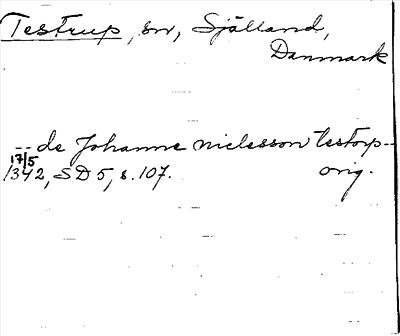 Testrup, sn, Sjælland,
Danmark
-- de Johanne nielsson testorp --
17/5
1342, SD 5, s. 107. orig.